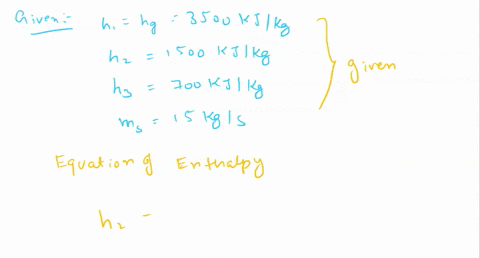 Given:- h₁ = hg = 3500 KJ/kg
h₂ = 1500 KJ/kg
h₃ = 700 KJ/kg
given
ms = 15 kg/s
Equation of Enthalpy
h₂ =